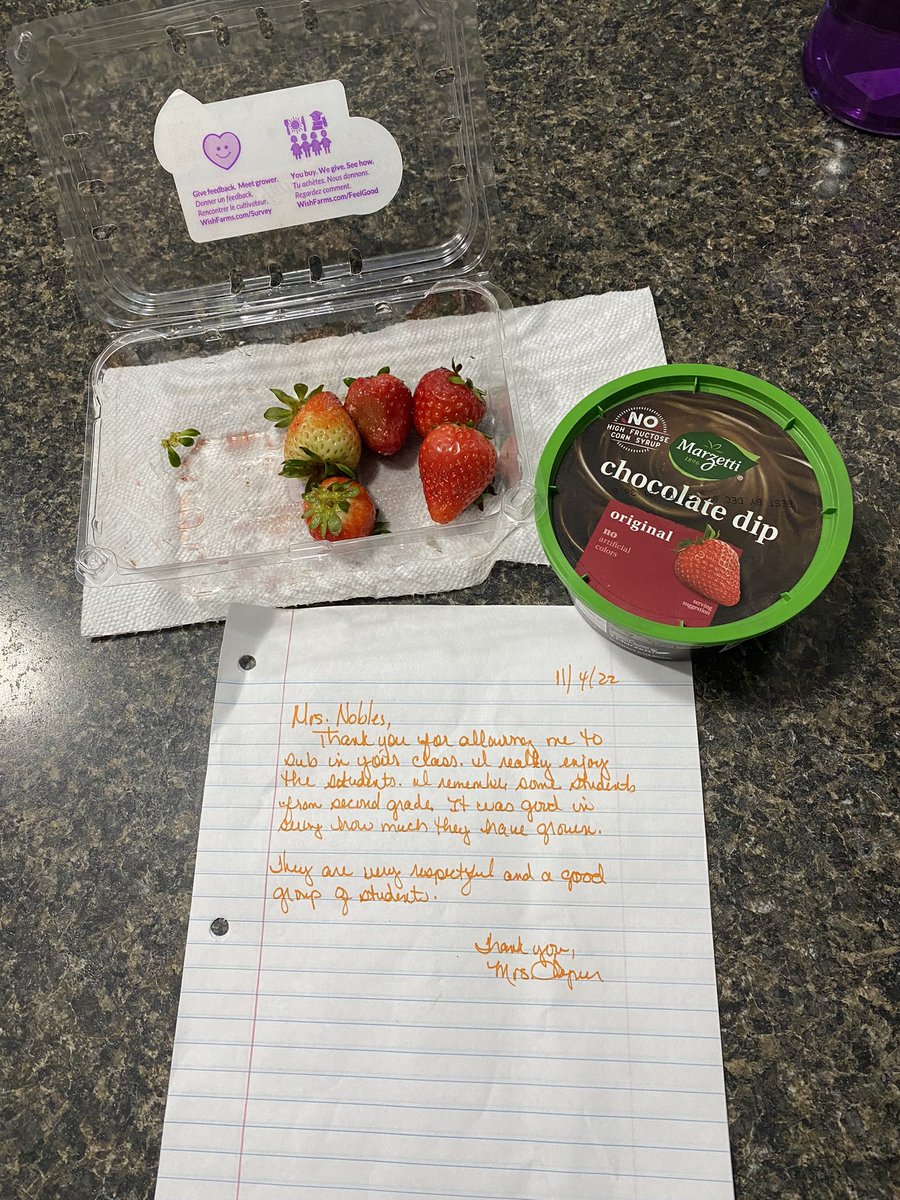 Give feedback. Meet grower.
Donner un feedback.
Rencontrer le cultivateur.
WishFarms.com/Survey
You buy. We give. See how.
Tu achètes. Nous donnons.
Regardez comment.
WishFarms.com/FeelGood
NO
HIGH FRUCTOSE
CORN SYRUP
Marzetti
1896
chocolate dip
BEST BY DEC
original
no
artificial
colors
serving
suggestion
11/4/22
Mrs. Nobles,
Thank you for allowing me to
sub in your class. I really enjoy
the students. I remember some students
from second grade. It was good in
seeing how much they have grown.
They are very respectful and a good
group of students.
Thank you,
Mrs.